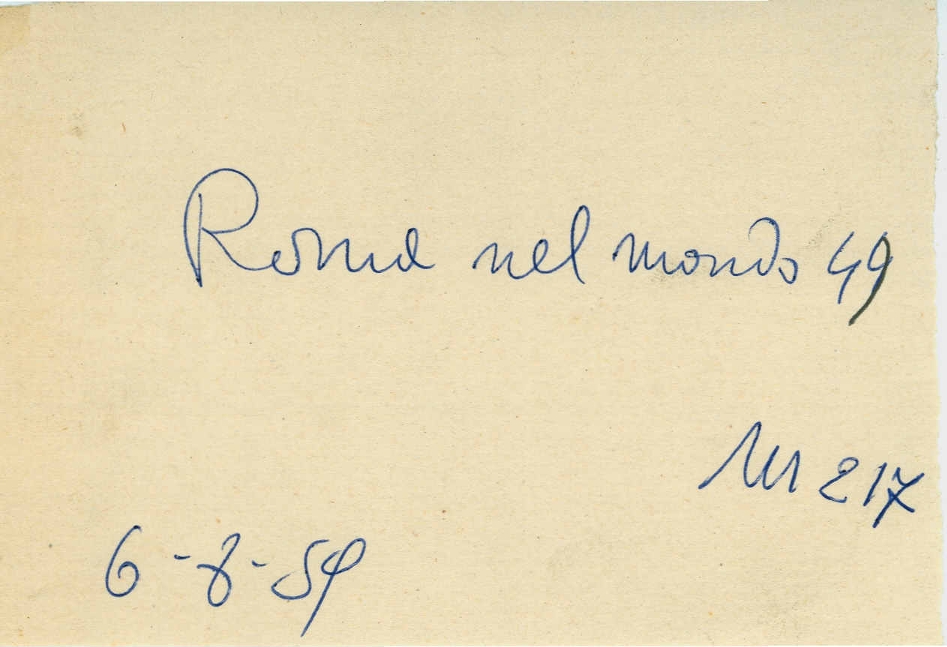 Roma nel mondo 49
M 217
6-8-59